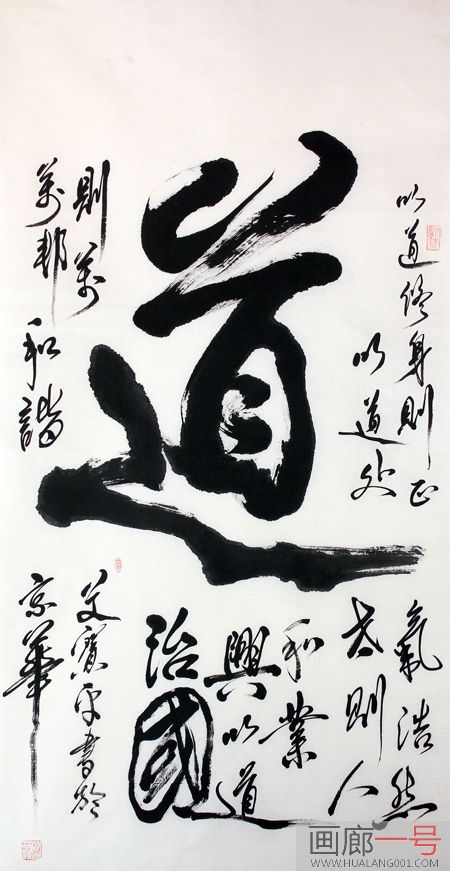 道
以道修身則正氣浩然
以道处世則人
和業
興以道
治國
則萬
萬邦和諧
艾寶平書於
京華
画廊一号
WWW.HUALANG001.COM